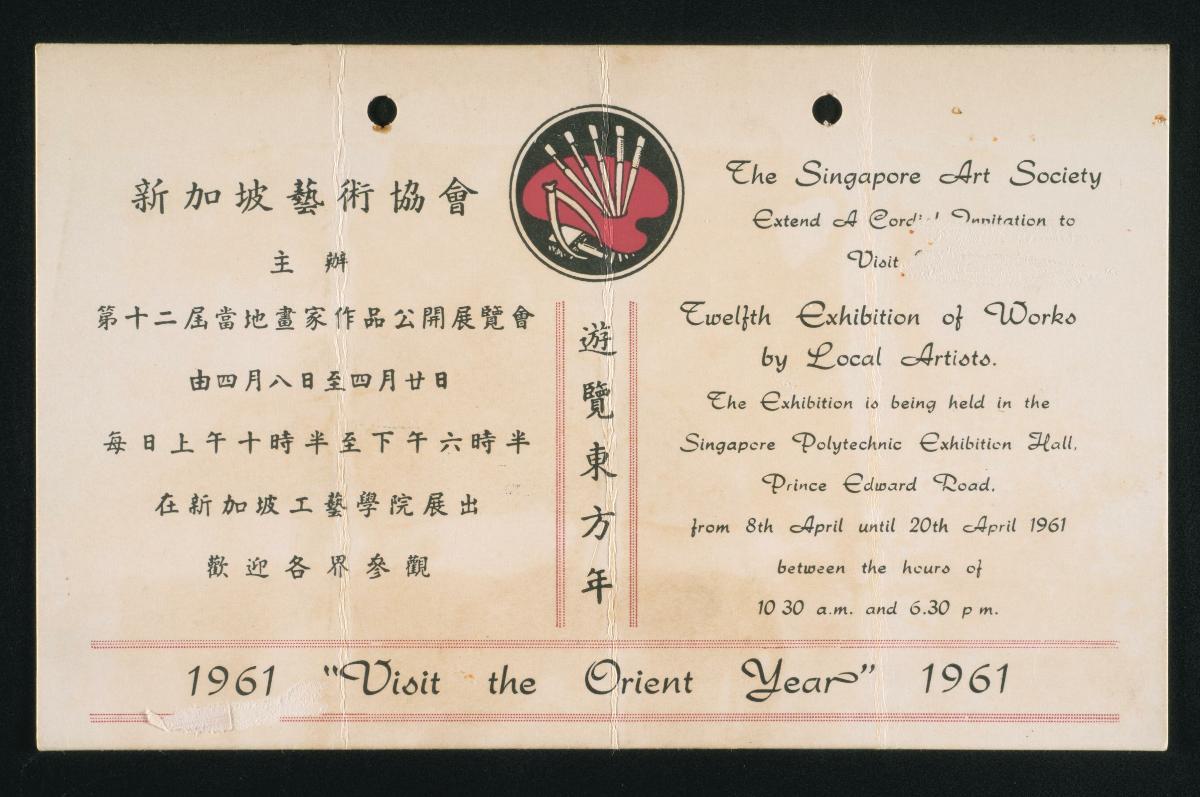 新加坡藝術協會
主辦
第十二屆當地畫家作品公開展覽會
由四月八日至四月廿日
每日上午十時半至下午六時半
在新加坡工藝學院展出
歡迎各界參觀
遊覽東方年
The Singapore Art Society
Extend A Cordial Invitation to
Visit
Twelfth Exhibition of Works
by Local Artists.
The Exhibition is being held in the
Singapore Polytechnic Exhibition Hall,
Prince Edward Road,
from 8th April until 20th April 1961
between the hours of
10 30 a.m. and 6.30 p m.
1961 "Visit the Orient Year" 1961